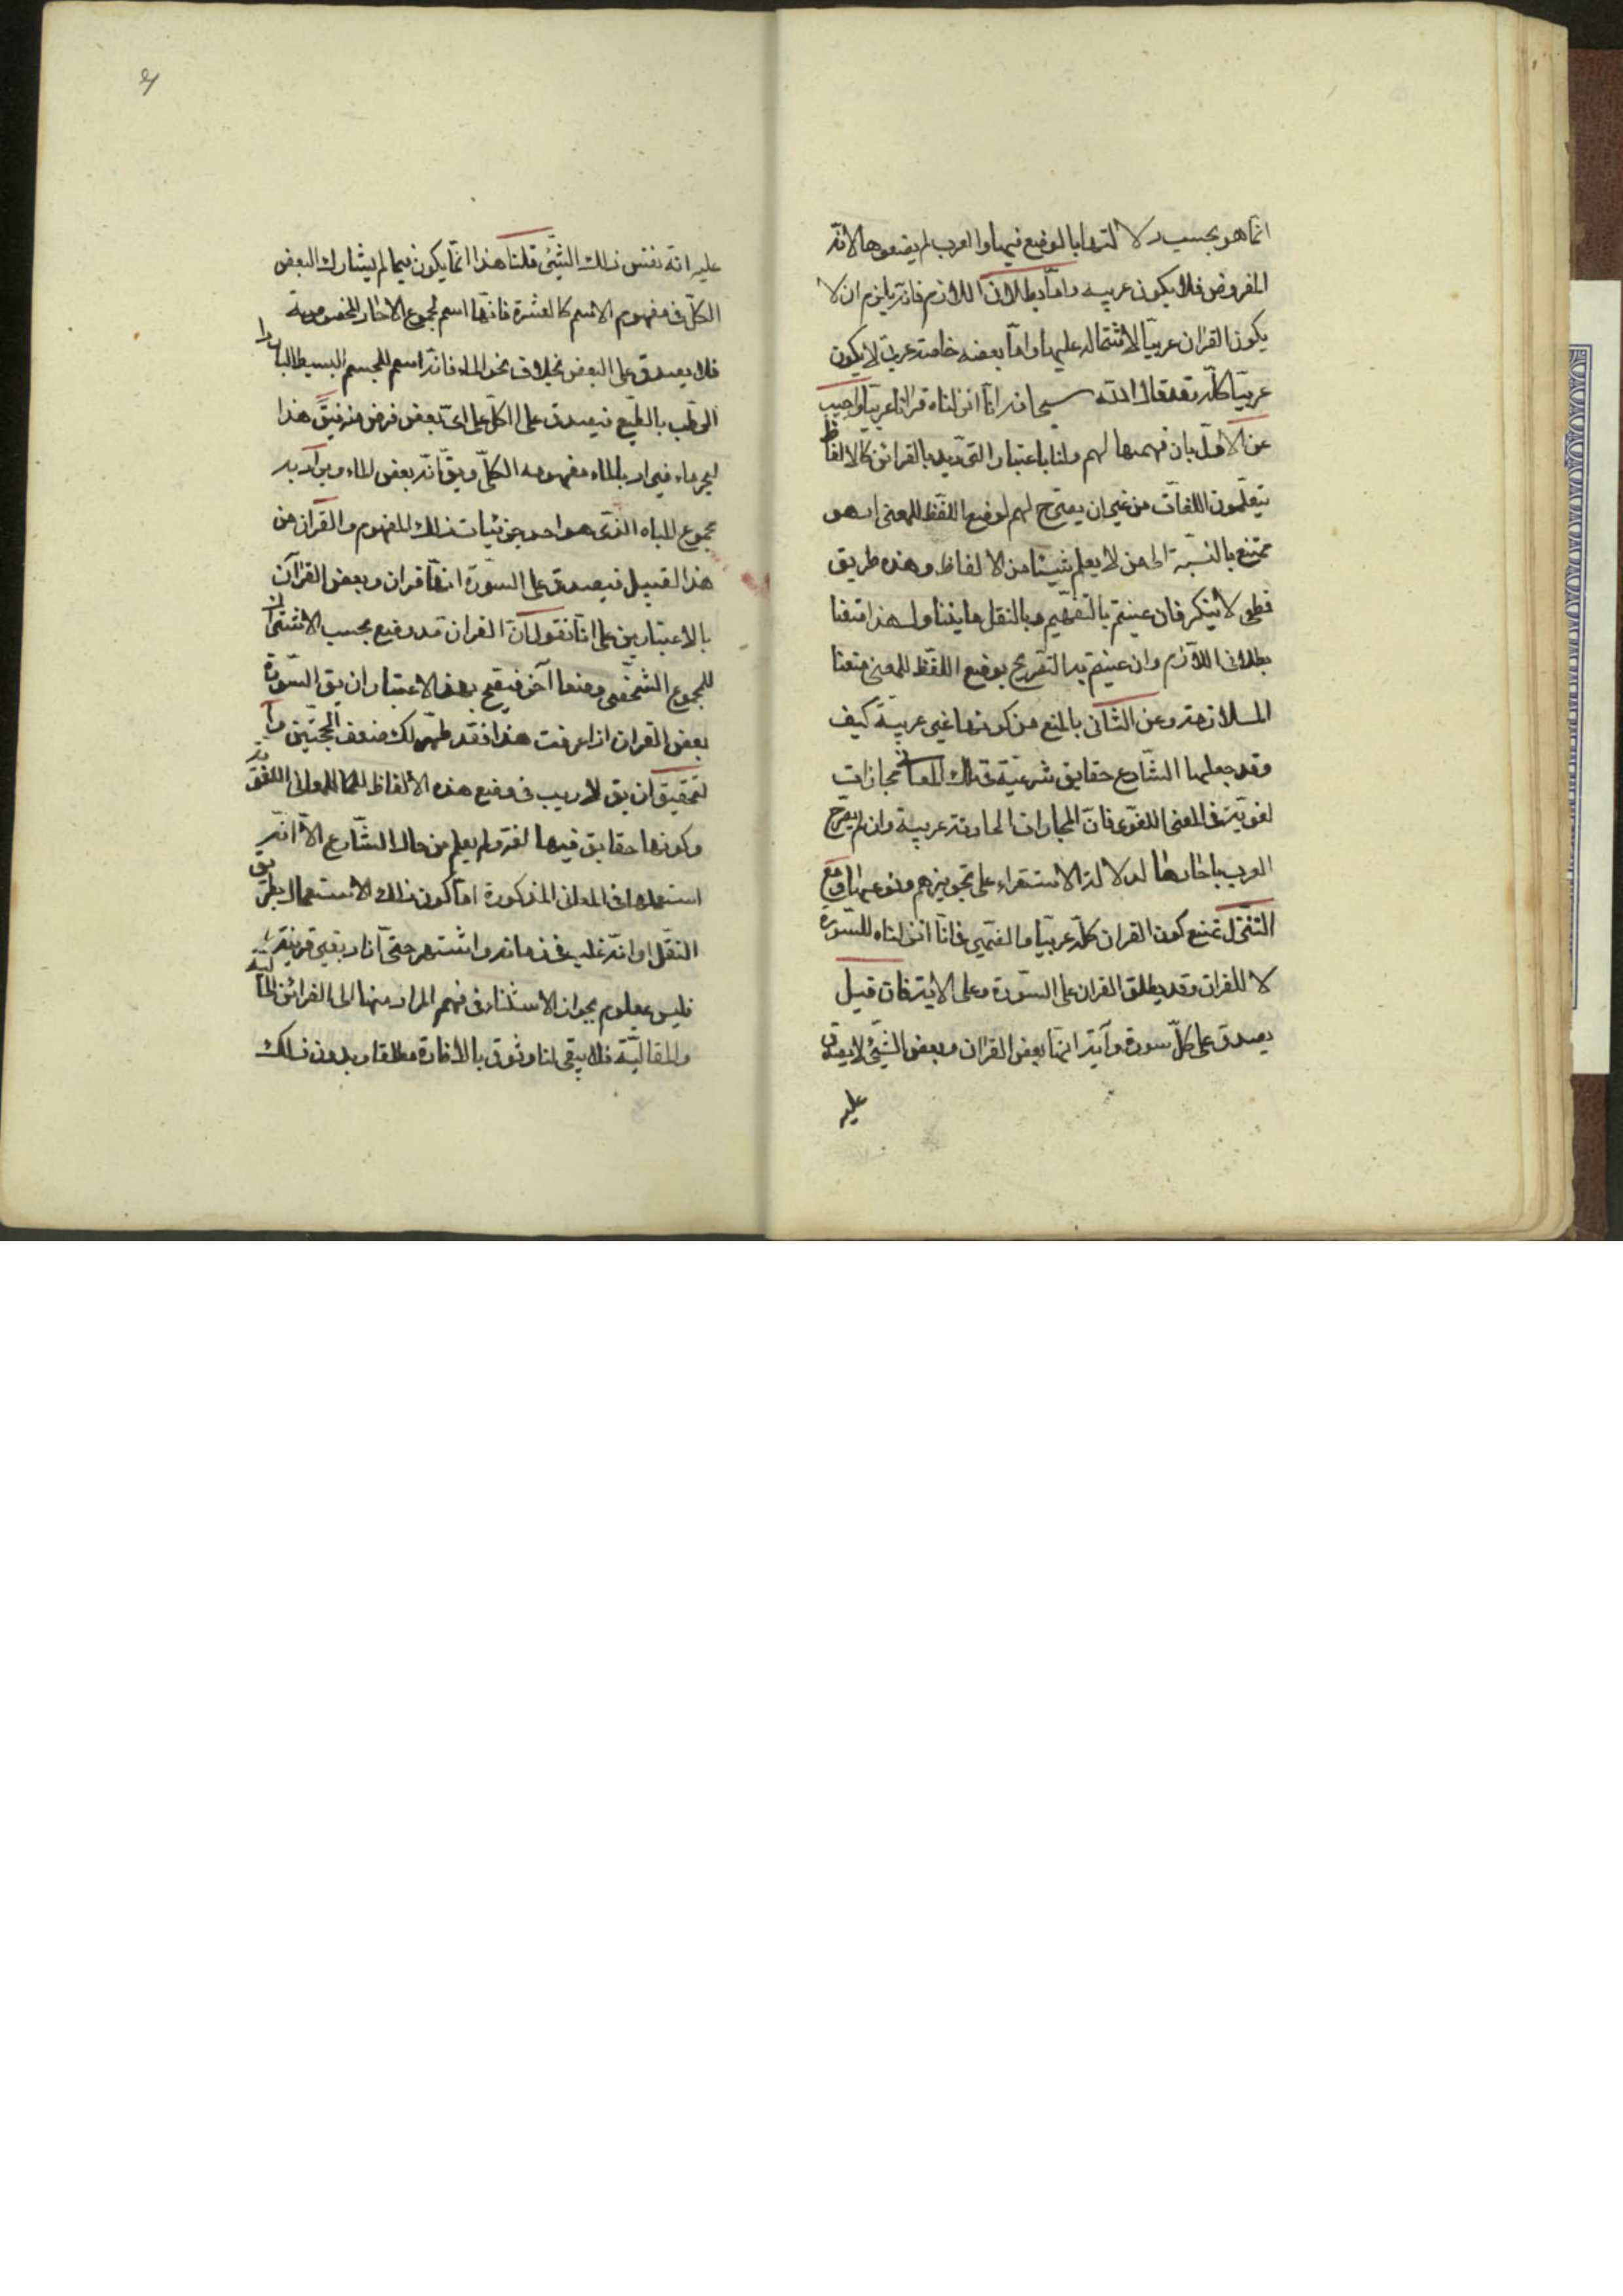 انما هو بحسب دلالتها بالوضع فيها والعرب لم يضعوها لانه
المفروض فلا يكون عربية واما بطلان اللازم فانه يلزم ان لا
يكون القران عربيا لاشتماله عليها وما بعضه خاصة عربي لا يكون
عربيا كله وقد قال الله سبحانه انا انزلناه قرانا عربيا واجيب
عن الاول بان فهمها لهم ولنا باعتبار الترديد بالقرائن كالاطفال
يتعلمون اللغات من غير ان يصرح لهم لوضع اللفظ للمعنى اذ هو
ممتنع بالنسبة الى من لا يعلم شيئا من الالفاظ وهذه طريق
قطعي لا ينكر فان عنيتم بالتفهيم وبالنقل ما يتناول هذا منعنا
بطلان اللازم وان عنيتم به التصريح بوضع اللفظ للمعنى منعنا
الملازمة وعن الثاني بالمنع من كونها غير عربية كيف
وقد جعلها الشارع حقايق شرعية في تلك المعاني مجازات
لغوية في المعنى اللغوي فان المجازات الحادثة عربية وان لم يصرح
العرب باحادها لدلالة الاستقراء على تجويزهم نوعها ومع
التنزل نمنع كون القران كله عربيا والضمير في انا انزلناه للسورة
لا للقران وقد يطلق القران على السورة وعلى الاية فان قيل
يصدق على كل سورة وآية انها بعض القران وبعض الشيء لا يصدق
عليه
عليه انه نفس ذلك الشيئ قلنا هذا انما يكون فيما لم يشارك البعض
الكل في مفهوم الاسم كالعشرة فانها اسم لمجموع الاحاد المخصوصة
فلا يصدق على البعض بخلاف نحو الماء فانه اسم للجسم البسيط البارد
الرطب بالطبع فيصدق على الكل على اي بعض فرض منه فيق هذا
البحر ماء فيراد بالماء مفهومه الكلي ويق انه بعض الماء ويراد به
مجموع المياه الذي هو احد جزئيات ذلك المفهوم والقران من
هذا القبيل فيصدق على السورة انها قران وبعض القرآن
بالاعتبارين على انا نقول ان القران قد وضع بحسب الاشتراك
للمجموع الشخصي وضعا آخر فيصح بهذا الاعتبار ان يق السورة
بعض القران اذا عرفت هذا فقد ظهر لك ضعف الحجتين و
التحقيق ان يق لا ريب في وضع هذه الالفاظ للمعاني اللغوية
وكونها حقايق فيها لغة ولم يعلم من حال الشارع الا انه
استعملها في المعاني المذكورة اما كون ذلك الاستعمال بطريق
النقل او انه غلب في زمانه واشتهر حتى افاد بغير قرينة
فليس بمعلوم لجواز الاستناد في فهم المراد منها الى القرائن الحالية
والمقالية فلا يبقى لنا وثوق بالافادة مطلقا وبدون ذلك